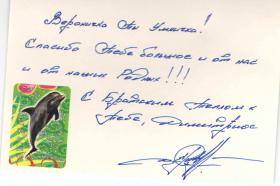 Вероничка Ты Умничка!
Спасибо Тебе большое и от нас
и от наших Родных!!!
С Братским Теплом к
Тебе, Димитриос